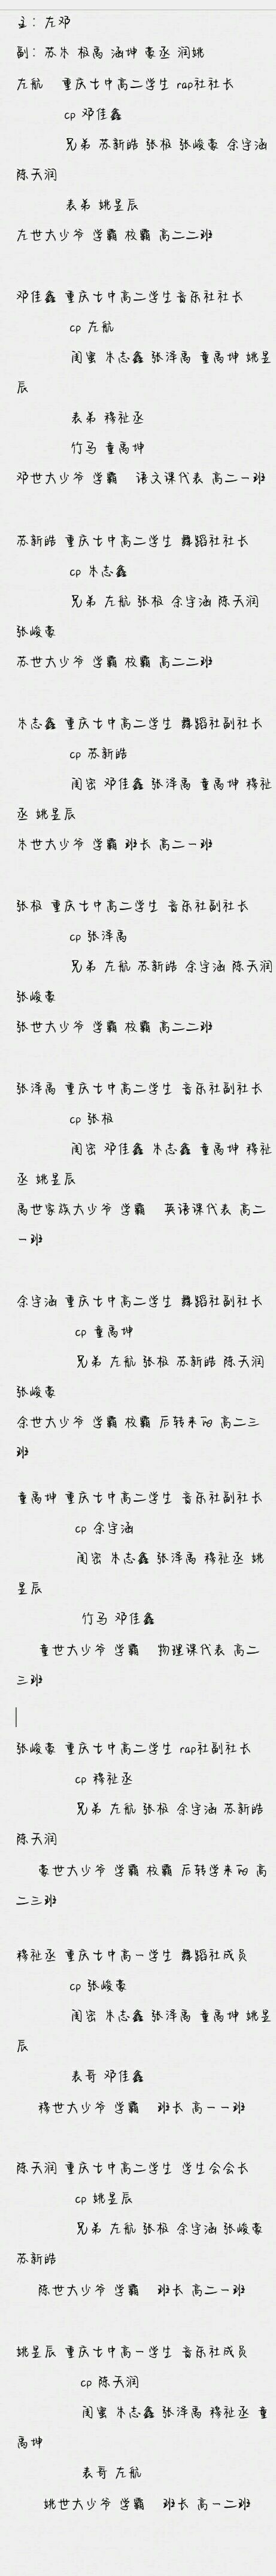 主：左邓
副：苏朱 极禹 涵坤 豪丞 润姚
左航 重庆七中高二学生 rap社社长
cp 邓佳鑫
兄弟 苏新皓 张极 张峻豪 余宇涵
陈天润
表弟 姚昱辰
左世大少爷 学霸 校霸 高二二班
邓佳鑫 重庆七中高二学生音乐社社长
cp 左航
闺蜜 朱志鑫 张泽禹 童禹坤 姚昱
辰
表弟 穆祉丞
竹马 童禹坤
邓世大少爷 学霸 语文课代表 高二一班
苏新皓 重庆七中高二学生 舞蹈社社长
cp 朱志鑫
兄弟 左航 张极 余宇涵 陈天润
张峻豪
苏世大少爷 学霸 校霸 高二二班
朱志鑫 重庆七中高二学生 舞蹈社副社长
cp 苏新皓
闺密 邓佳鑫 张泽禹 童禹坤 穆祉
丞 姚昱辰
朱世大少爷 学霸 班长 高二一班
张极 重庆七中高二学生 音乐社副社长
cp 张泽禹
兄弟 左航 苏新皓 余宇涵 陈天润
张峻豪
张世大少爷 学霸 校霸 高二二班
张泽禹 重庆七中高二学生 音乐社副社长
cp 张极
闺密 邓佳鑫 朱志鑫 童禹坤 穆祉
丞 姚昱辰
禹世家族大少爷 学霸 英语课代表 高二
一班
余宇涵 重庆七中高二学生 舞蹈社副社长
cp 童禹坤
兄弟 左航 张极 苏新皓 陈天润
张峻豪
余世大少爷 学霸 校霸 后转来的 高二三
班
童禹坤 重庆七中高二学生 音乐社副社长
cp 余宇涵
闺密 朱志鑫 张泽禹 穆祉丞 姚
昱辰
竹马 邓佳鑫
童世大少爷 学霸 物理课代表 高二
三班
张峻豪 重庆七中高二学生 rap社副社长
cp 穆祉丞
兄弟 左航 张极 余宇涵 苏新皓
陈天润
豪世大少爷 学霸 校霸 后转学来的 高
二三班
穆祉丞 重庆七中高一学生 舞蹈社成员
cp 张峻豪
闺密 朱志鑫 张泽禹 童禹坤 姚昱
辰
表哥 邓佳鑫
穆世大少爷 学霸 班长 高一一班
陈天润 重庆七中高二学生 学生会会长
cp 姚昱辰
兄弟 左航 张极 余宇涵 张峻豪
苏新皓
陈世大少爷 学霸 班长 高二一班
姚昱辰 重庆七中高一学生 音乐社成员
cp 陈天润
闺蜜 朱志鑫 张泽禹 穆祉丞 童
禹坤
表哥 左航
姚世大少爷 学霸 班长 高一二班